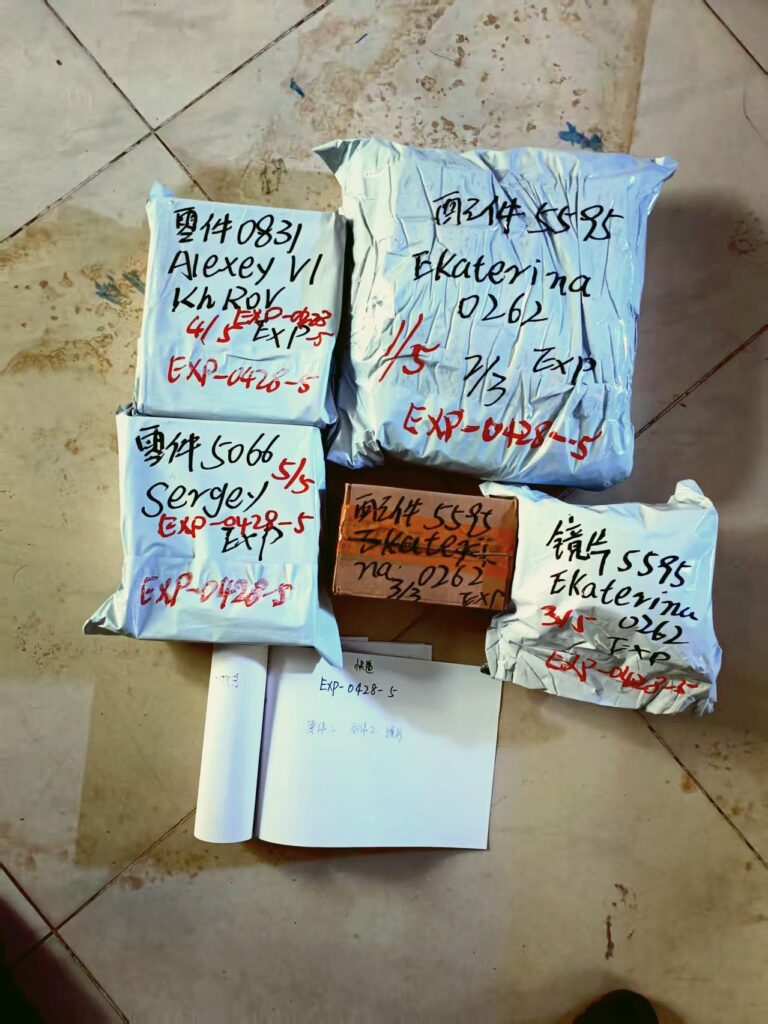 零件0831
Alexey VI
KhRov
4/5 EXP-0428
EXP-5
EXP-0428-5
配件5595
EKaterina
0262
1/5
2/3 EXP
EXP-0428-5
零件5066
5/5
Sergey
EXP-0428-5
EXP
EXP-0428-5
配件5595
Ekateri
na 0262
3/3 EXP
镜片5595
EKaterina
3/5 0262
EXP
EXP-0428-5
快递
EXP-0428-5
零件2 配件2 镜片